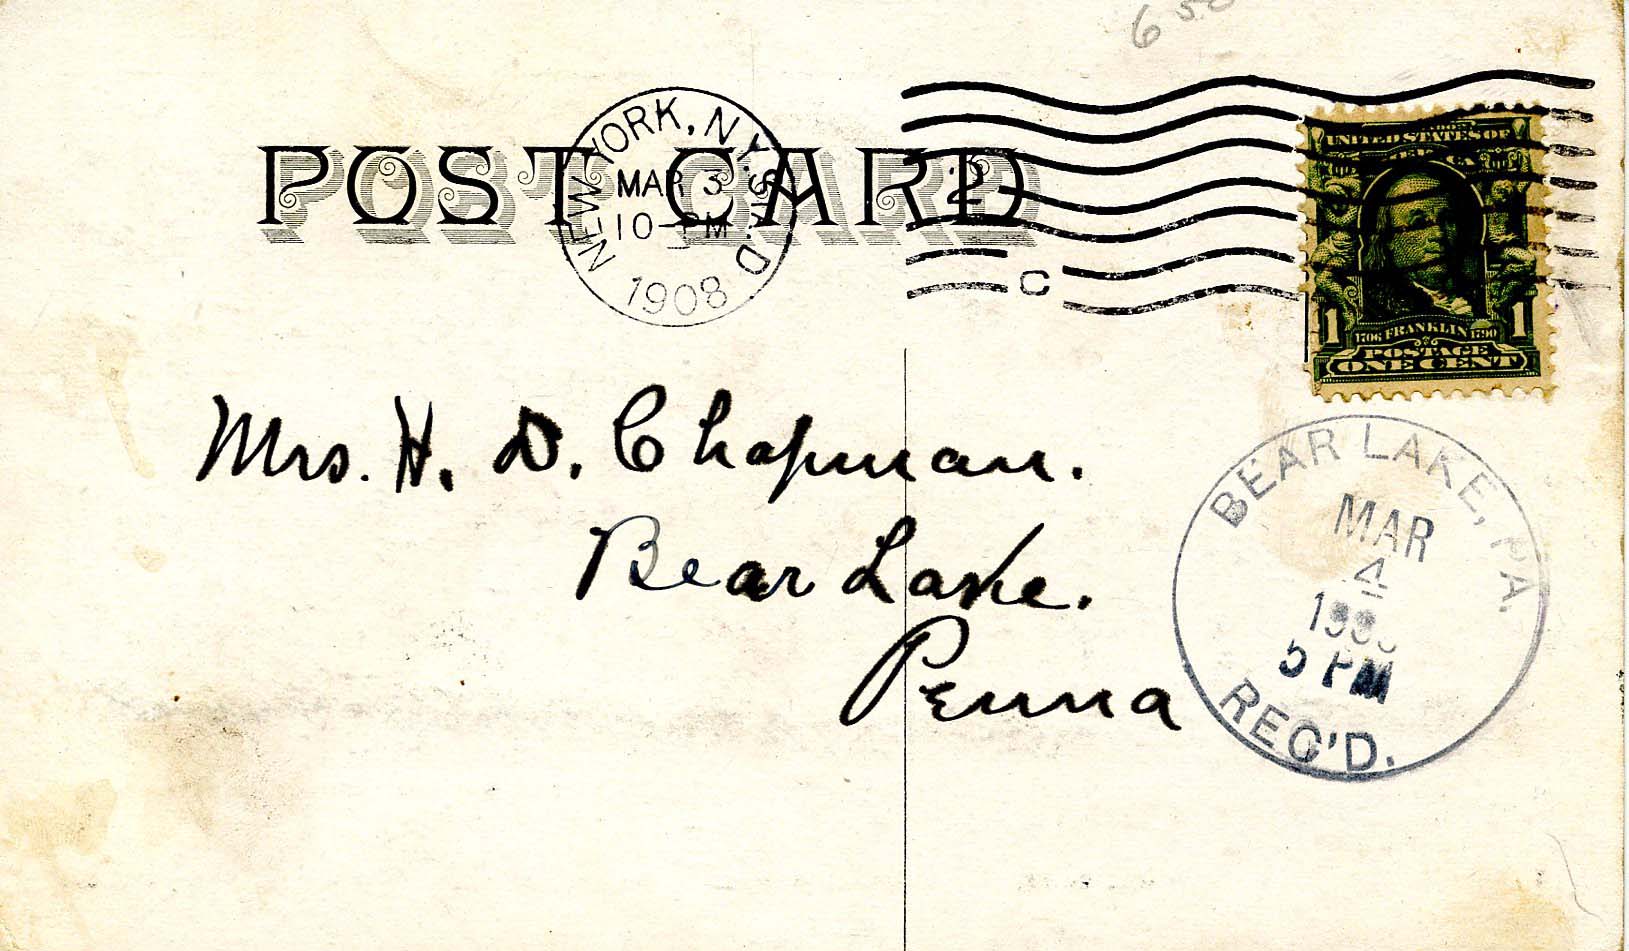 POST CARD
NEW YORK, N.Y. STA. D
MAR 3
10-PM
1908
2
C
UNITED STATES OF
1 1706 FRANKLIN 1790 1
POSTAGE
ONE CENT
Mrs. H. D. Chapman.
Bear Lake.
Penna
BEAR LAKE, PA.
MAR
4
5 PM
REC'D.